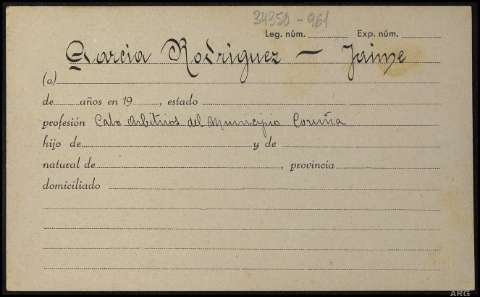 34350-961
Leg. núm. Exp. núm.
Garcia Rodriguez — Jaime
(a)
de años en 19 , estado
profesión Cabo Arbitrios del Municipio Coruña
hijo de y de
natural de , provincia
domiciliado
ARG